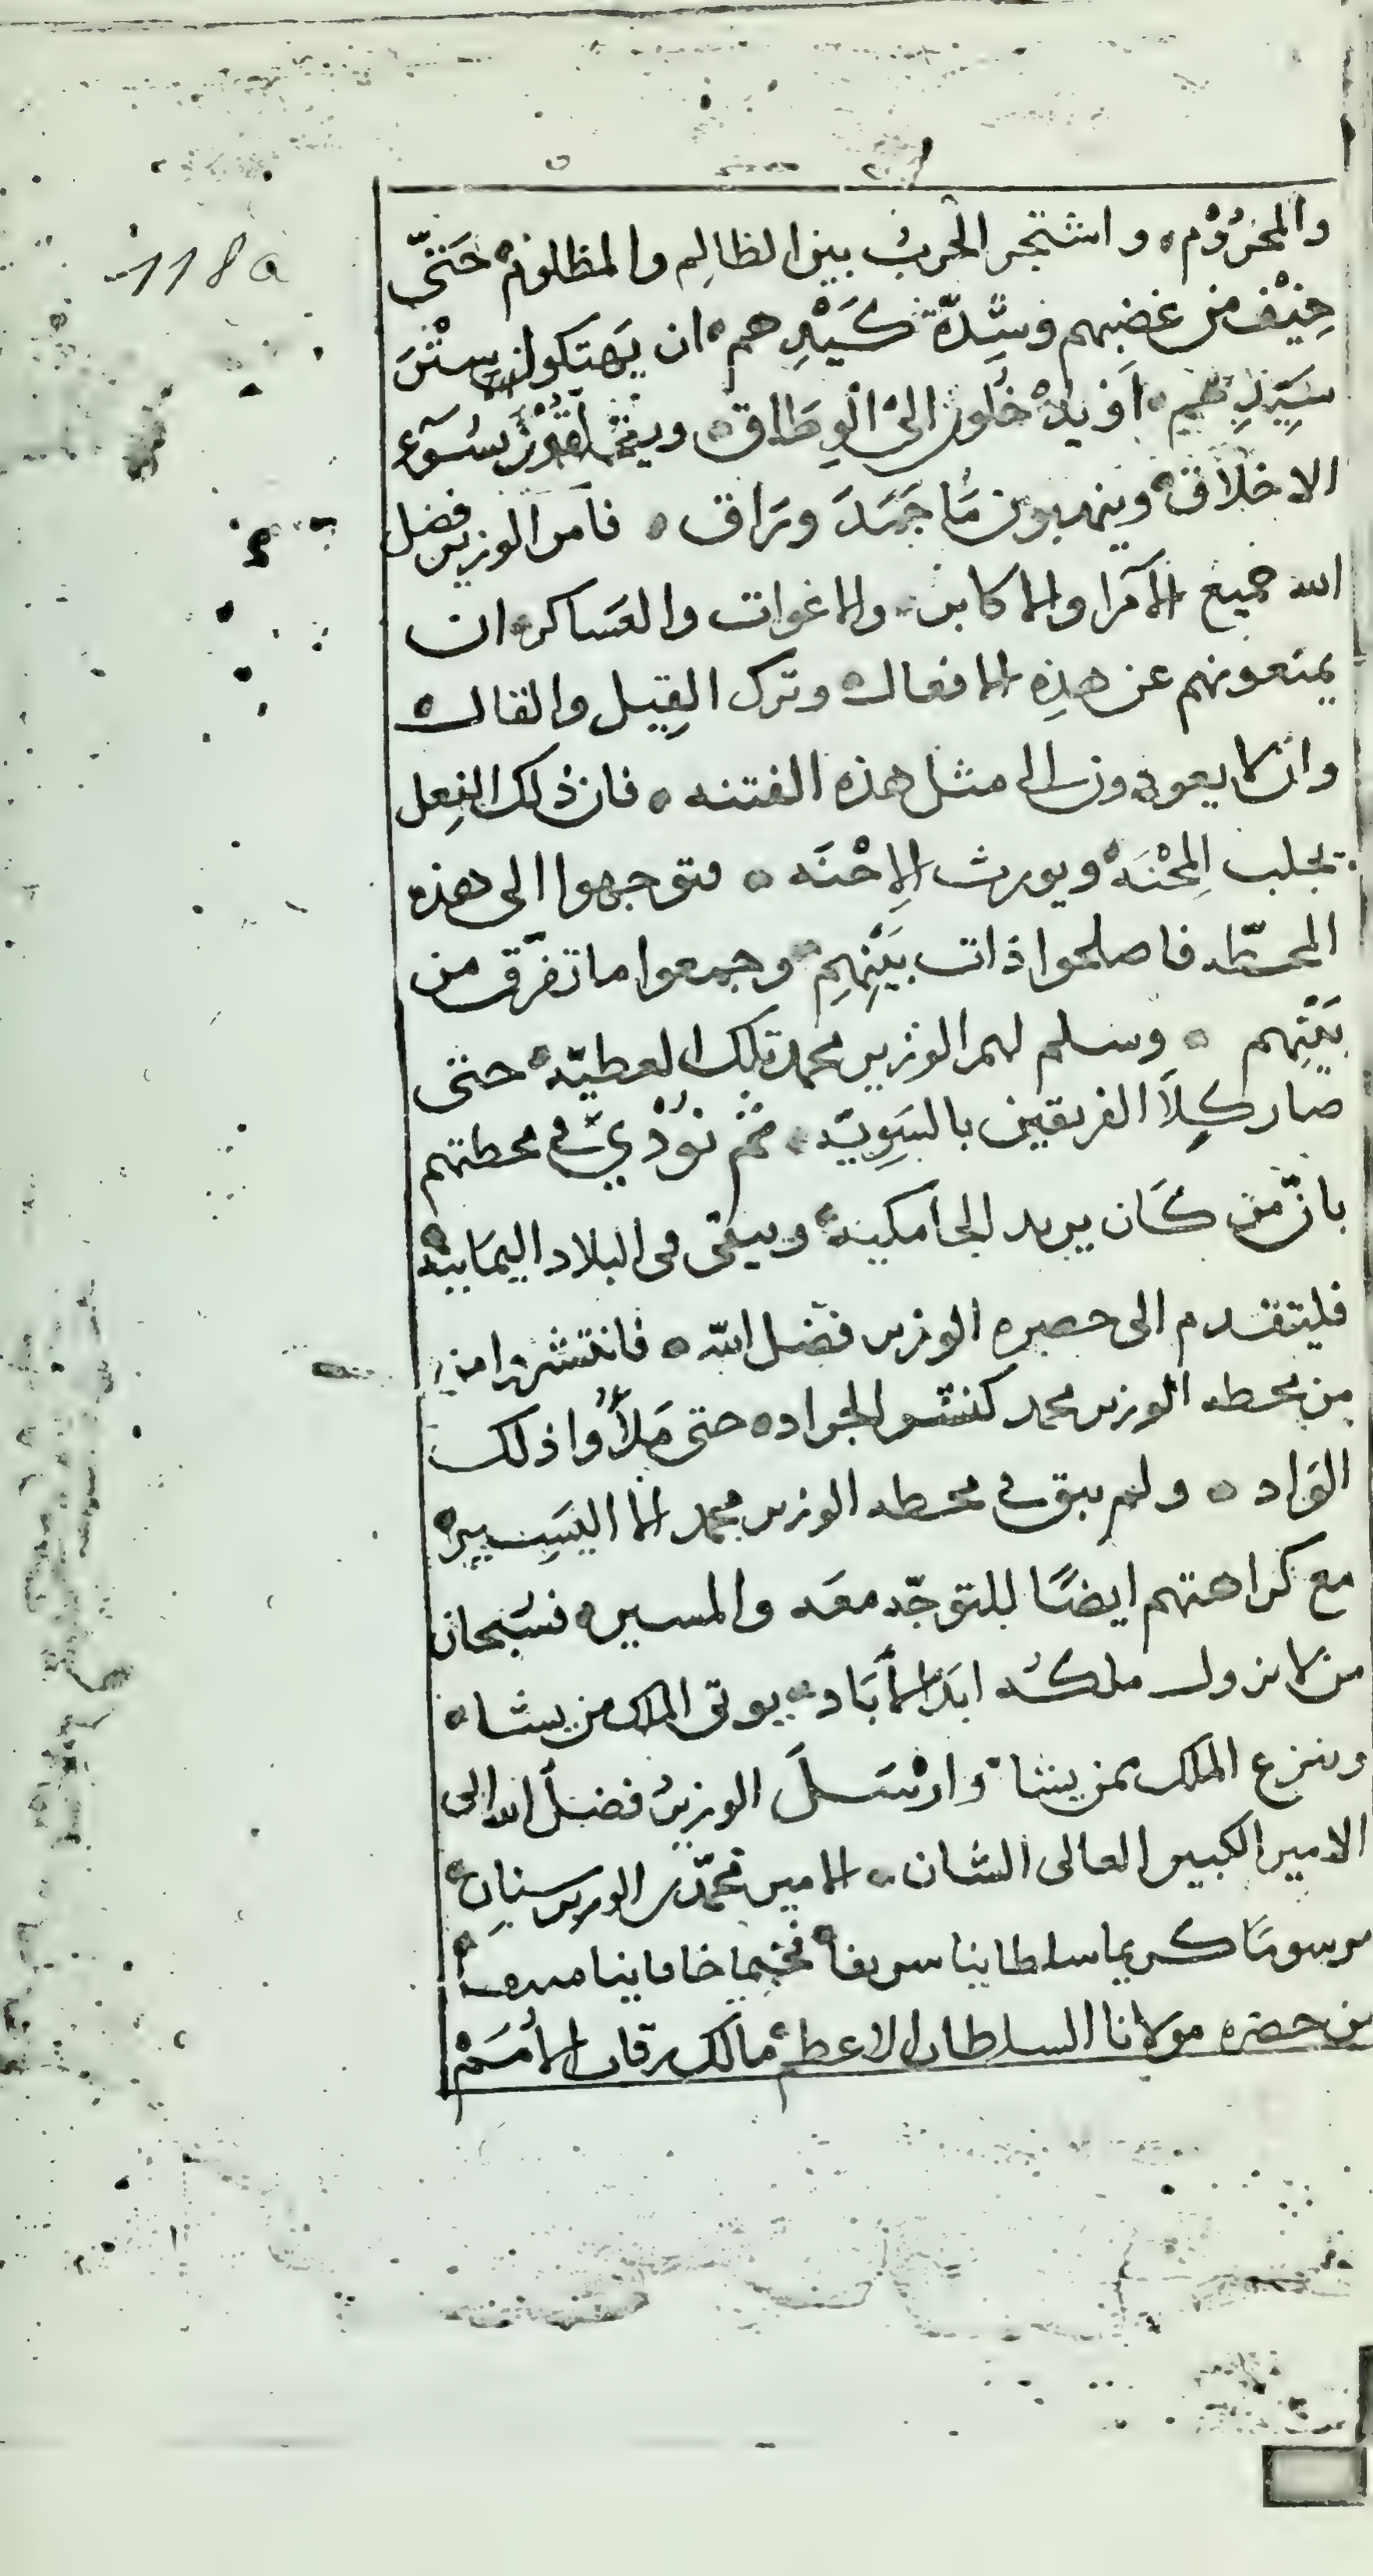 118a
والمحرُوْم ۰ واشتجر الحربُ بين الظالِم والمظلوم ۰ حَتىّٰ
خِيْف من غضبِهم وشِدّة كَيْدِهم ۰ ان يَهتكون سِتْرَ
سَيِّدِهم ۰ اَوْ يدْخُلون الىْ الْوِطَاق ۰ بسُوٓء
الاخلاق ۰ وينهبون مَا جَمَدَ ورَاق ۰ فامر الوزير فضل
الله جميع الاَمَرا والاكابر ۰ والاغوات والعسَاكر ۰ ان
يمنعونهم عن هذِه الافعال ۰ وترك القِيل والقال ۰
وان لا يعودون الى مثل هذه الفتنه ۰ فان ذلك الفِعل
يجلب المِحْنَهْ ويورث الاِحْنَه ۰ فتوجهوا الى هذه
المحطّه فاصلحوا ذات بَيْنِهِم ۰ وجمعوا ما تفرّق من
بَيْنِهم ۰ وسلم لهم الوزير محمد تلك العطيّه ۰ حتى
صار كِلاَ الفريقين بالسَوِيّه ۰ ثمْ نوُدْيَ في محطتهم
بانّ من كَان يريد الجامكيه ۰ ويبقى فى البلاد اليمَانيه ۰
فليتقدم الى حصره الوزير فضل الله ۰ فانتشروا من
من محطه الوزير محمد كنشو الجراد ۰ حتى مَلأُوا ذلك
الوَاد ۰ ولم يبق في محطه الوزير محمد الا اليَسِير ۰
مع كراهتهم ايضًا للتوجّه معَه والمسير ۰ فسُبحان
من لا يزول ملكُه ابَدَ الاَبَاد ۰ يوتى الملك من يشا ۰
وينزع الملك ممن يشا ۰ وارْسَلَ الوزيرُ فضل الله الى
الامير الكبير العالى الشان ۰ الامير محمّد بن الوزير سنان ۰
مرسومًا كريما سلطانيا سريفا ۰ فخيما خاقانيا منيفا ۰
من حضره مولانا السلطان الاعظم ۰ مالك رقاب الاُمَمْ